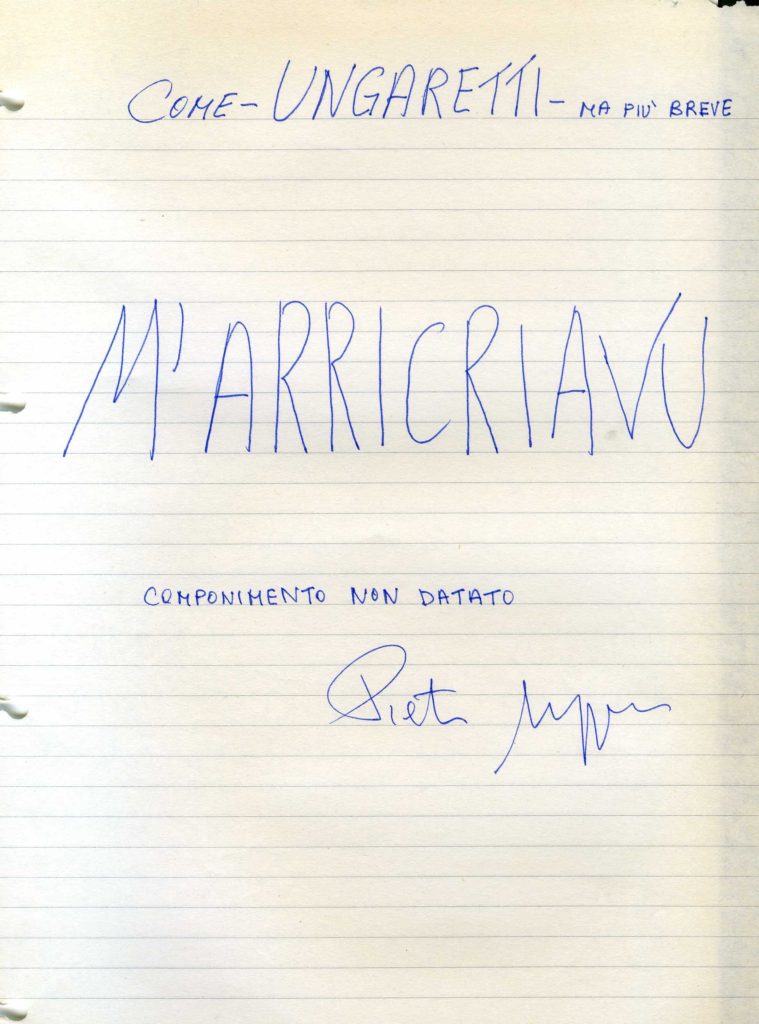 COME - UNGARETTI - MA PIU' BREVE
M'ARRICRIAVU
COMPONIMENTO NON DATATO